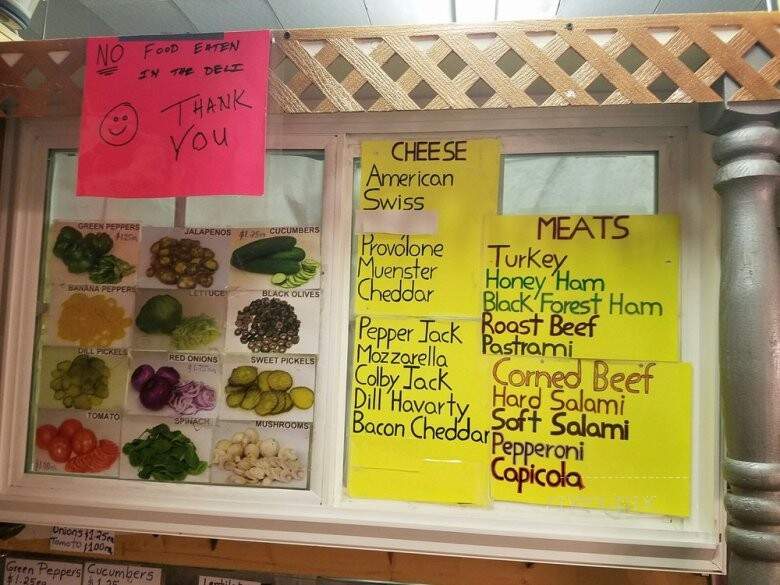 NO FOOD EATEN
IN THE DELI
THANK
YOU
GREEN PEPPERS
JALAPENOS
CUCUMBERS
BANANA PEPPERS
LETTUCE
BLACK OLIVES
DILL PICKELS
RED ONIONS
SWEET PICKELS
TOMATO
SPINACH
MUSHROOMS
CHEESE
American
Swiss
Provolone
Muenster
Cheddar
Pepper Jack
Mozzarella
Colby Jack
Dill Havarty
Bacon Cheddar
MEATS
Turkey
Honey Ham
Black Forest Ham
Roast Beef
Pastrami
Corned Beef
Hard Salami
Soft Salami
Pepperoni
Capicola
Onions $1.25
Tomato $1.00
Green Peppers
$1.25
Cucumbers